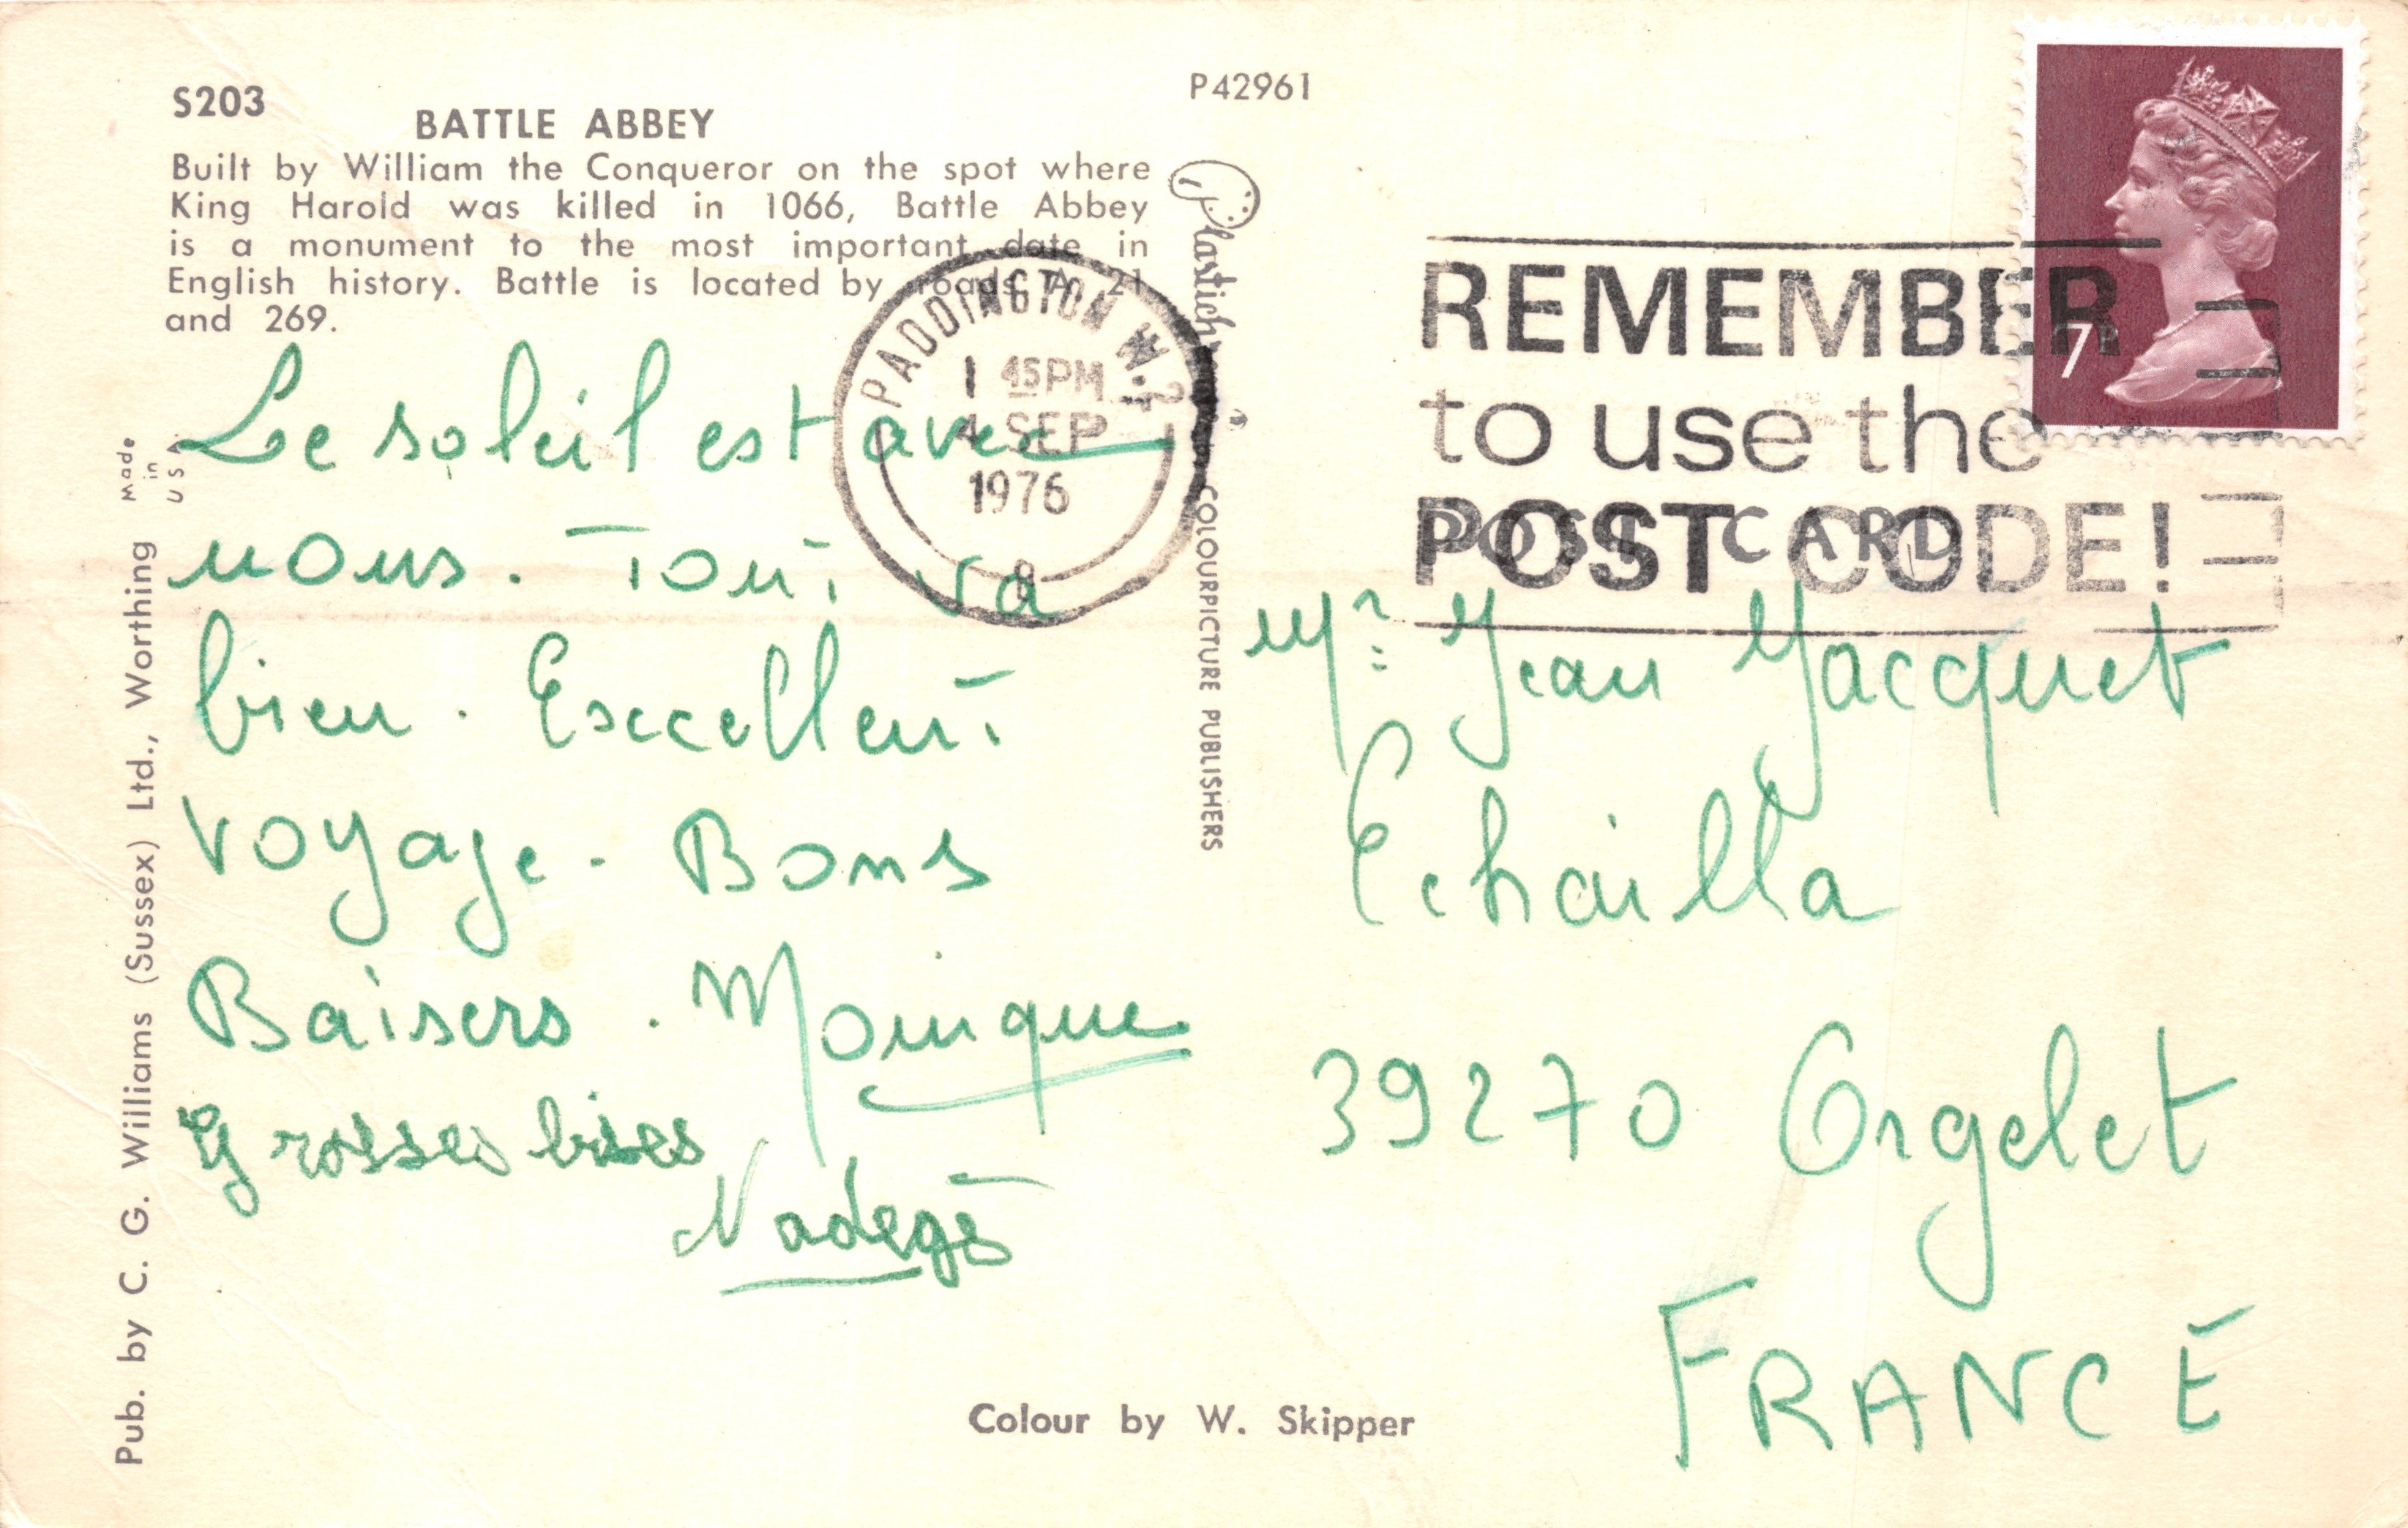 S203
BATTLE ABBEY
Built by William the Conqueror on the spot where
King Harold was killed in 1066, Battle Abbey
is a monument to the most important date in
English history. Battle is located by roads A 21
and 269.
P42961
Plastichrome
COLOURPICTURE PUBLISHERS
Made
in
USA
Pub. by C. G. Williams (Sussex) Ltd., Worthing
PADDINGTON W.2
1 45PM
4 SEP
1976
B
REMEMBER
to use the
POST CODE!
POST CARD
7P
Le soleil est avec
nous. Tout va
bien. Excellent
voyage. Bons
Baisers. Monique
Grosses bises
Nadège
Mr Jean Jacquet
Echailla
39270 Orgelet
FRANCE
Colour by W. Skipper